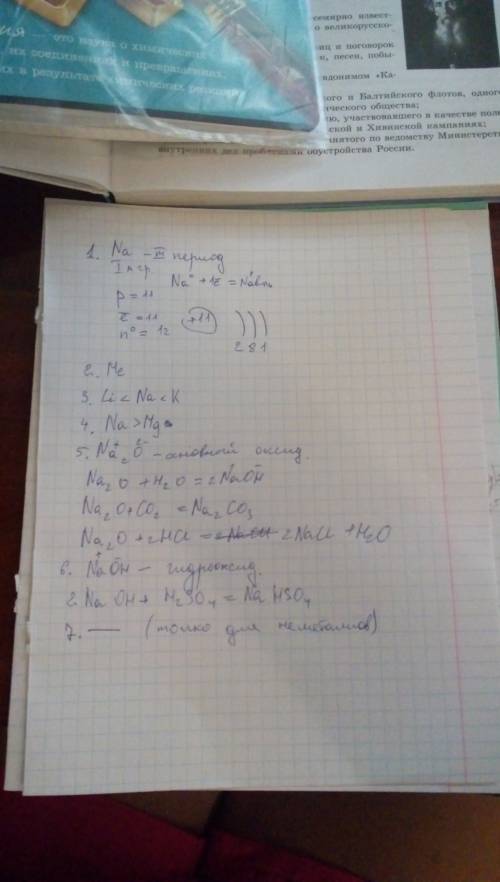 ия ... это наука о химических
их соединений и превращениях,
их в результате химических реакций
семирно извест-
о великорусско-
виц и поговорок
н, песен, побы-
вдонимом «Ка-
кого и Балтийского флотов, одного
ического общества;
ию, участвовавшего в качестве пол
ской и Хивинской кампаниях;
нятого по ведомству Министерств
внутренних дел проблемами обустройства России.
1. Na – III период
I А гр.
Na⁰ + 1e̅ =
p = 11
e̅ = 11
n⁰ = 12
+11 )))
2 8 1
2. Me
3. Li < Na < K
4. Na > Mg
5. Na⁺₂O²⁻ – основной оксид.
Na₂O + H₂O = 2NaOH
Na₂O + CO₂ = Na₂CO₃
Na₂O + 2HCl = 2NaCl + H₂O
6. Na⁺OH⁻ – гидрооксид.
2. NaOH + H₂SO₄ = NaHSO₄
7. — (только для неметаллов)